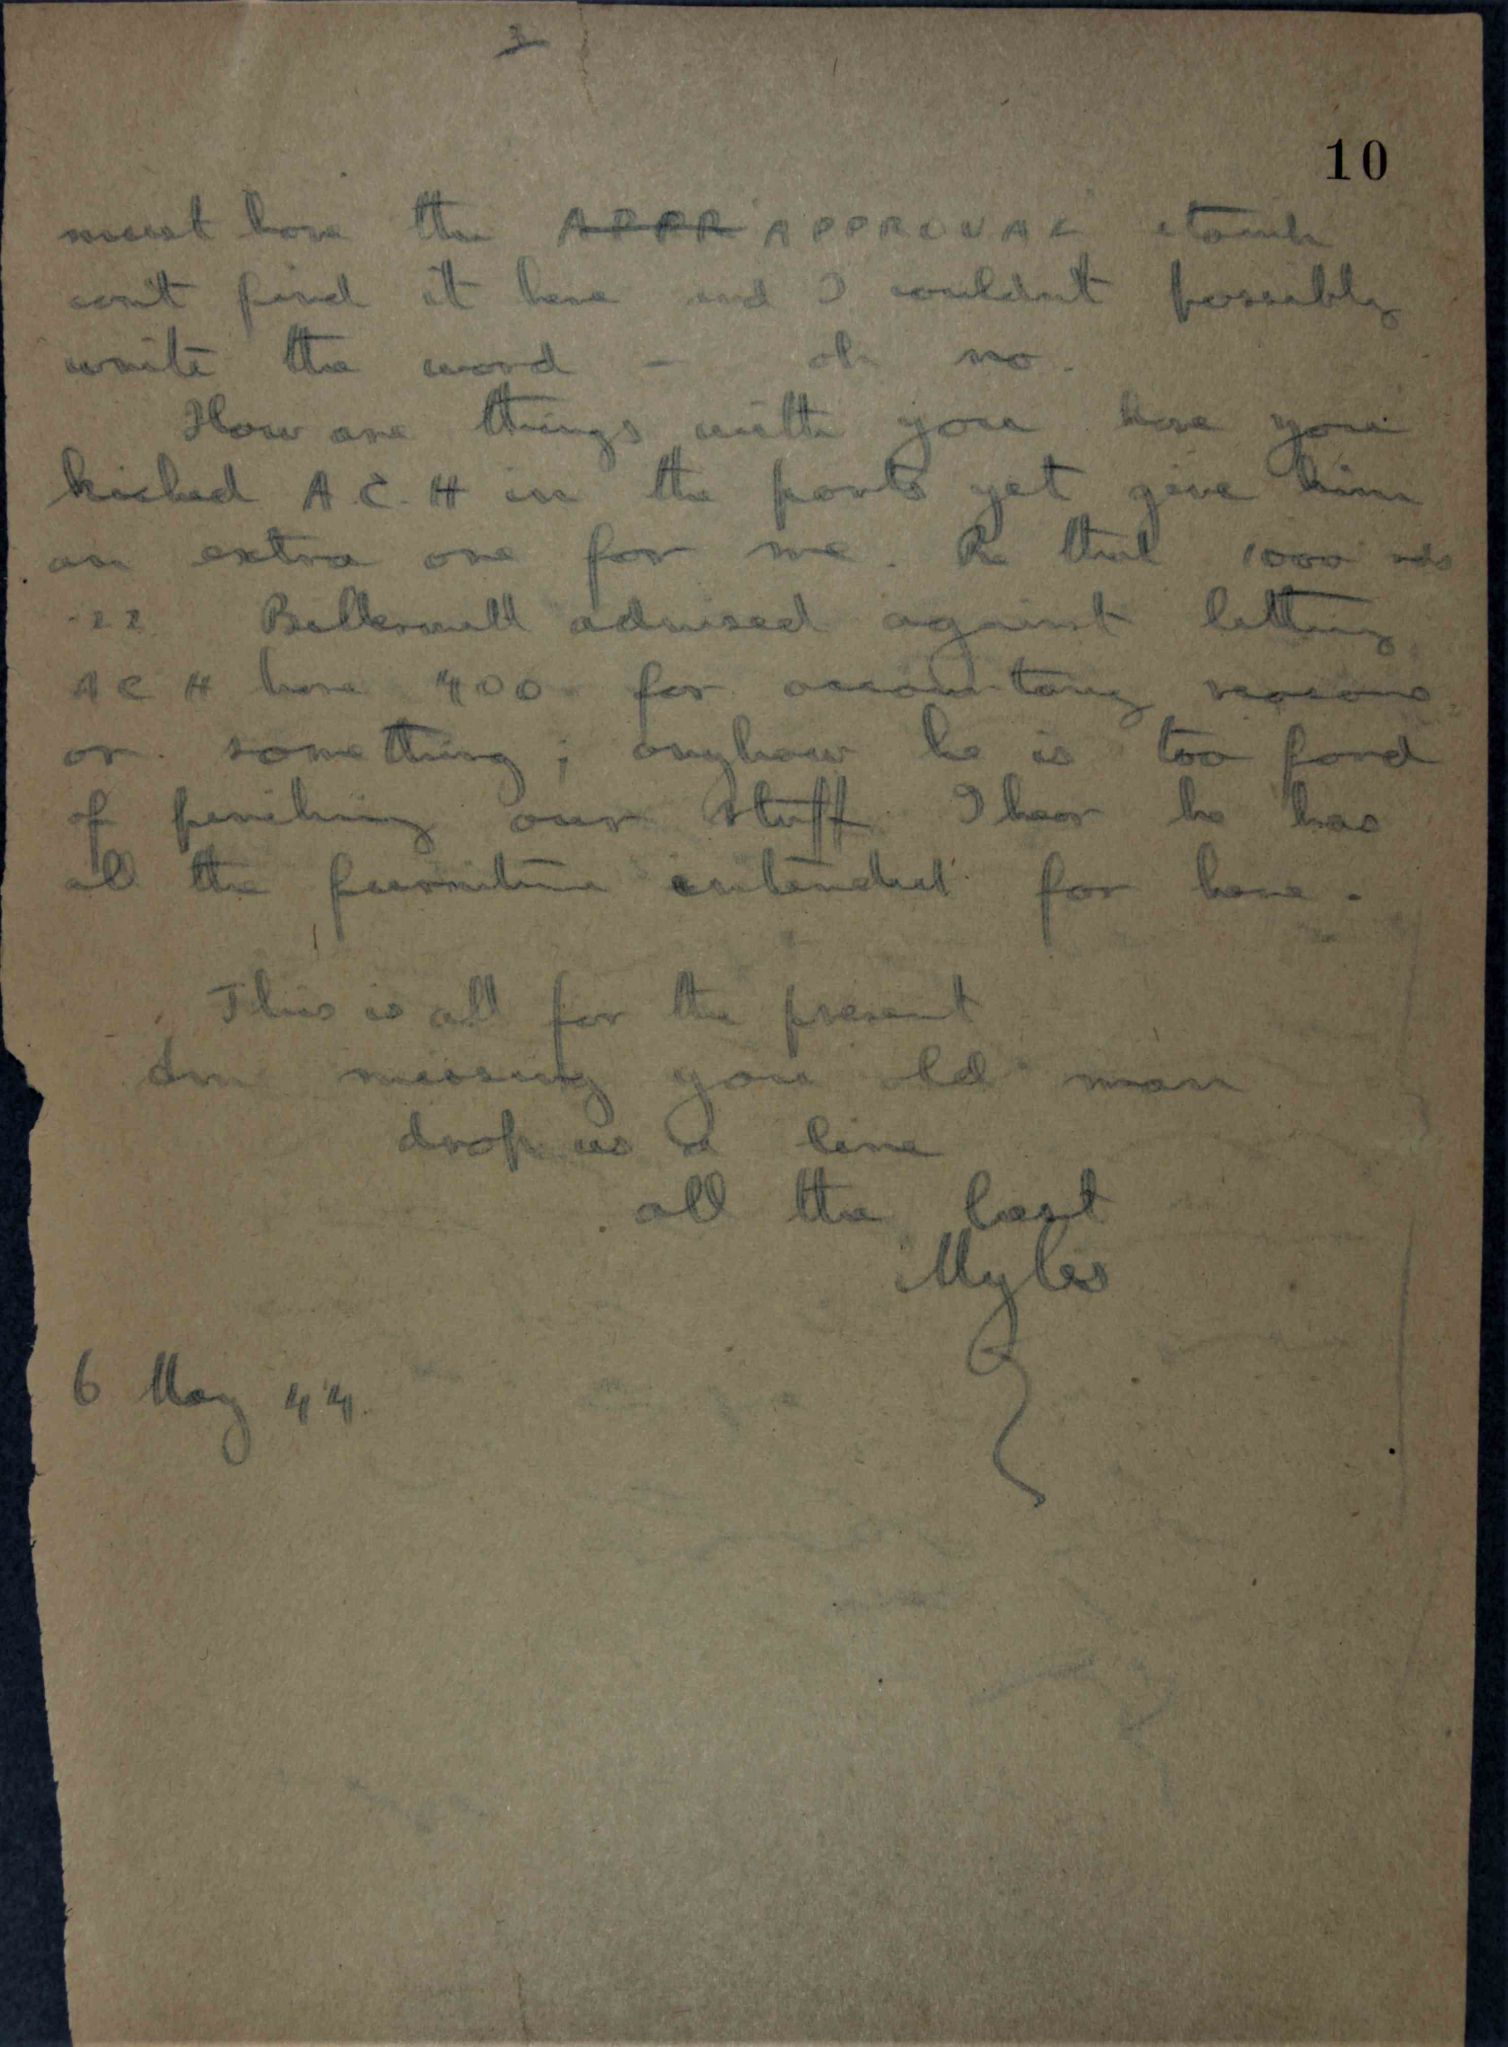 3
10
must have the APPR APPROVAL stamp
cant find it here and I couldn't possibly
write the word - oh no.
How are things with you have you
kicked A.C.H in the pants yet give him
an extra one for me. Re that 1000 rds
.22 advised against letting
A C H have 400 for accountancy reasons
or something; anyhow he is too fond
of pinching our stuff. I hear he has
all the furniture intended for here.
This is all for the present
Am missing you old man
drop us a line
all the best
Myles
6 May 44.